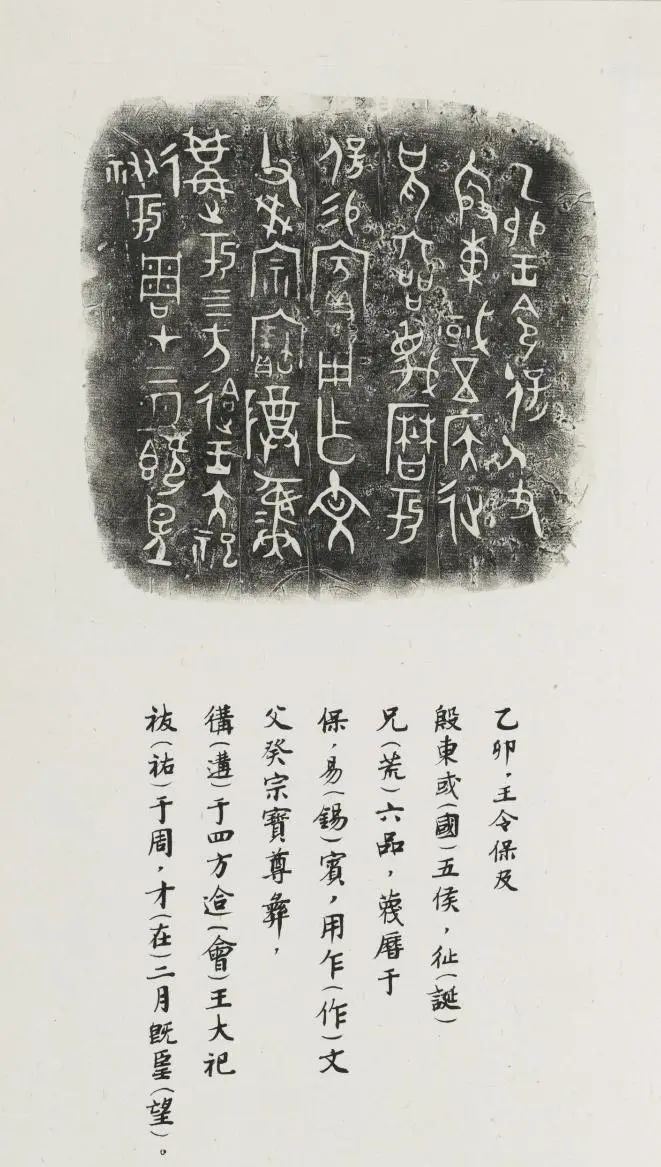 乙卯，王令保及
殷東或（國）五侯，㣔（誕）
兄（荒）六品，蔑曆于
保，易（錫）賓，用乍（作）文
父癸宗寶尊彝，
遘（遘）于四方迨（會）王大祀
祓（祐）于周，才（在）二月旣朢（望）。